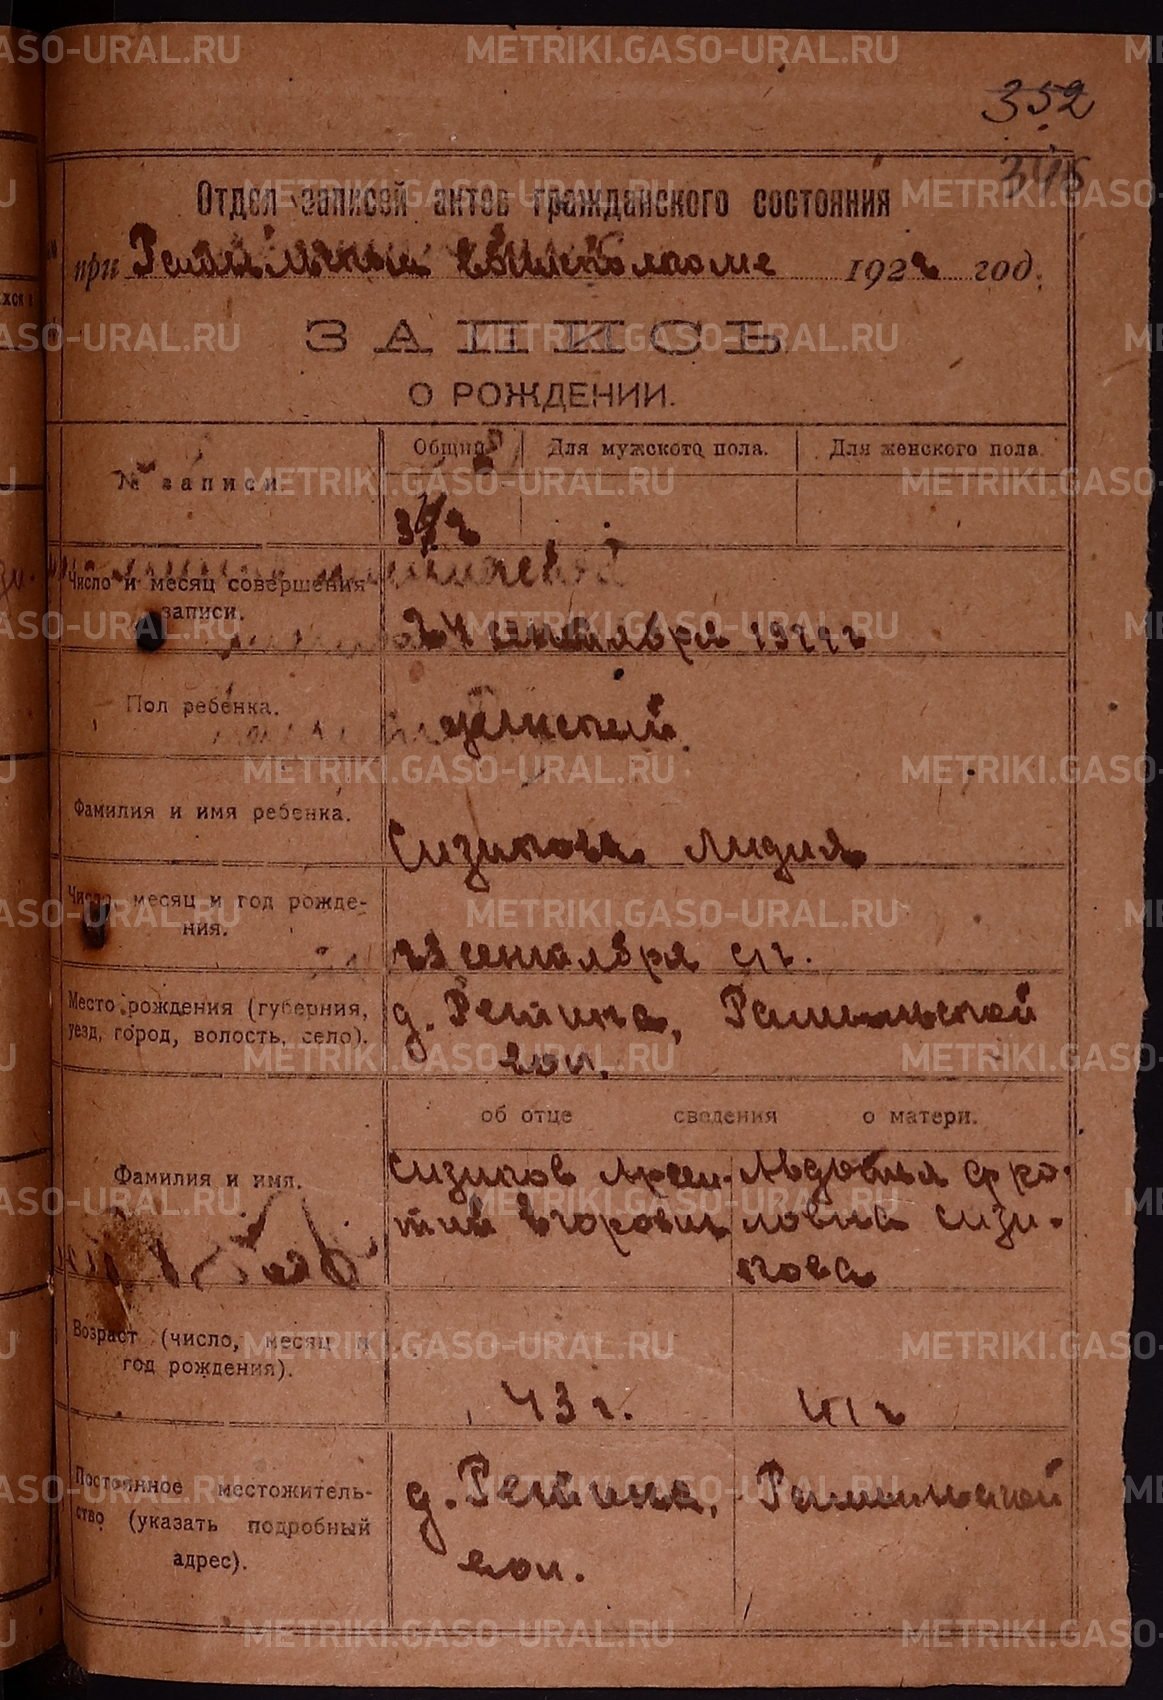 352
345
Отдел записей актов гражданского состояния
при 1922 год.
ЗАПИСЬ
О РОЖДЕНИИ.
№ записи
Общий
Для мужского пола.
Для женского пола.
Число и месяц совершения записи.
24 сентября 1922 г
Пол ребенка.
женский
Фамилия и имя ребенка.
Сизикова Лидия
Число, месяц и год рожде-
ния.
23 сентября с/г.
Место рождения (губерния,
уезд, город, волость, село).
д. Ретина,
вол.
об отце сведения о матери.
Фамилия и имя.
Сизиков
Егорович
Авдотья Фро-
ловна Сизи-
кова
Возраст (число, месяц и
год рождения).
43 г.
41 г
Постоянное местожитель-
ство (указать подробный
адрес).
д. Ретина,
вол.
METRIKI.GASO-URAL.RU